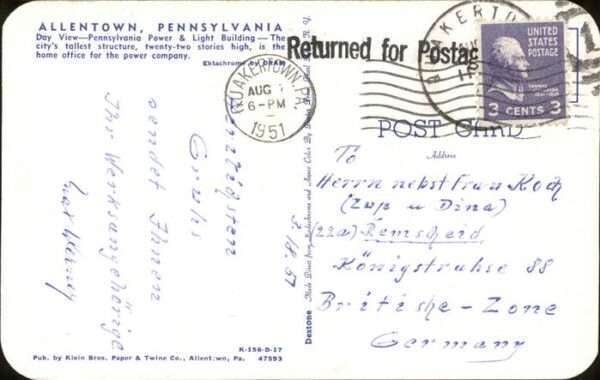 ALLENTOWN, PENNSYLVANIA
Day View—Pennsylvania Power & Light Building—The
city's tallest structure, twenty-two stories high, is the
home office for the power company.
Ektachrome by
Returned for Postag
QUAKERTOWN, PA.
AUG
6-PM
1951
QUAKERTO
UNITED
STATES
POSTAGE
3 CENTS 3
POST CARD
Address
To
Herrn nebst Frau Koch
(Zup u Dina)
(22a) Remscheid
Königstrahse 88
Britishe-Zone
Germany
herzlichsten
Gruhs
sendet Ihnen
Ihr Werksangehörige
Dextone Made Direct from Kodachrome and Ansco Color By Dexter
K-156-D-17
Pub. by Klein Bros. Paper & Twine Co., Allentown, Pa. 47593